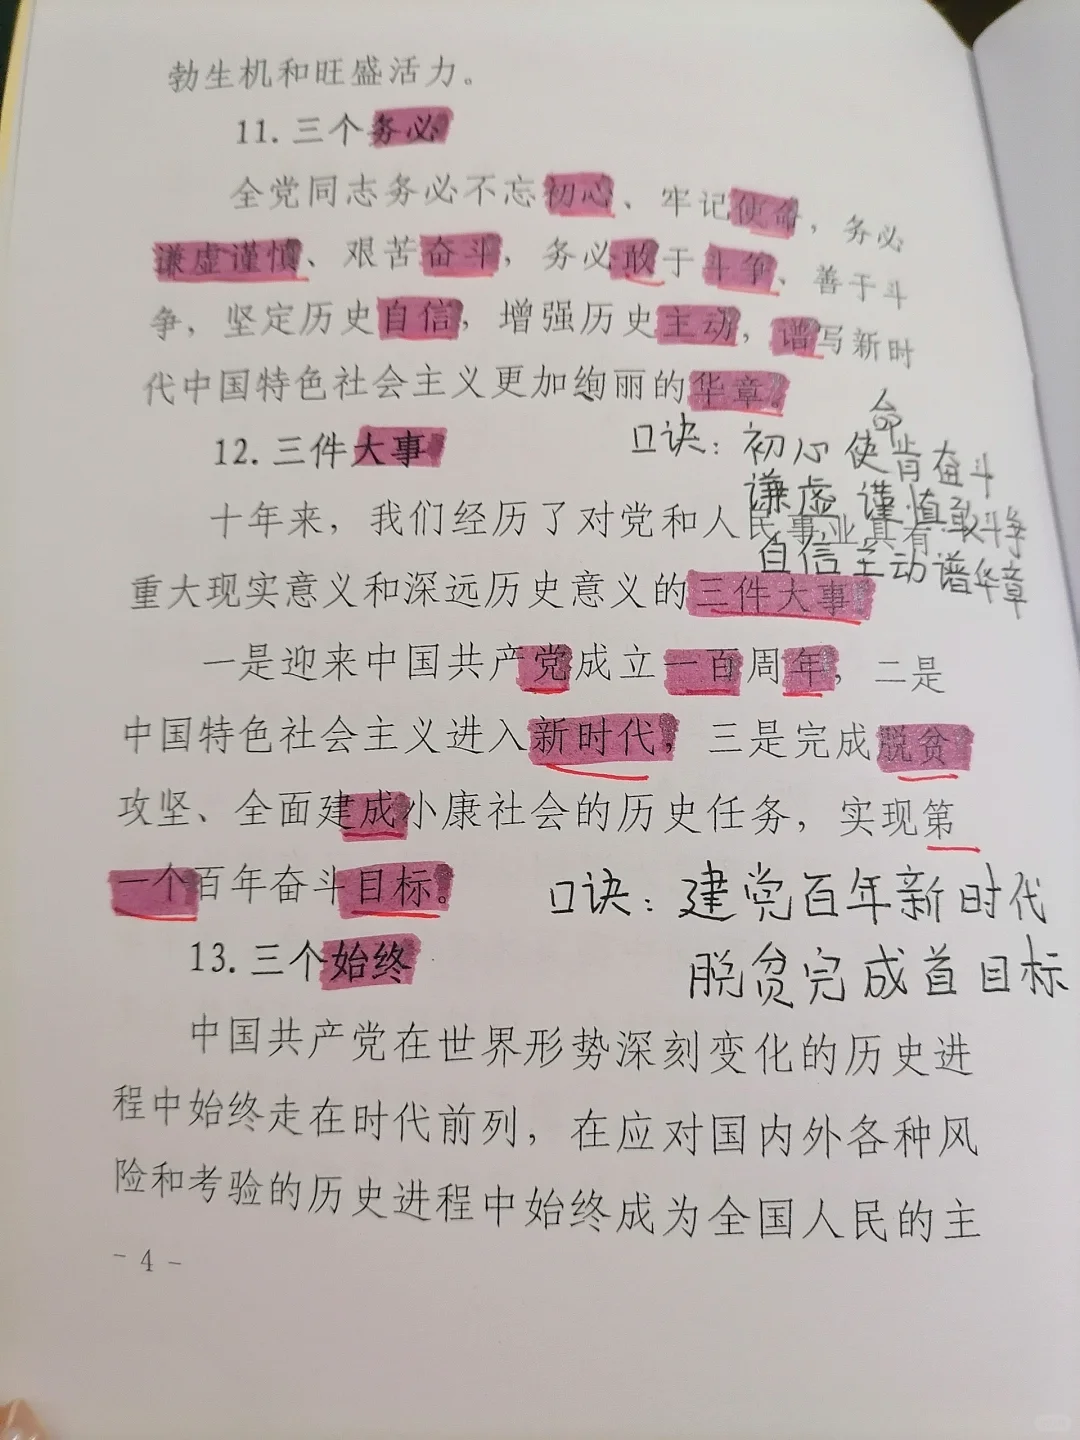 勃生机和旺盛活力。
11. 三个务必
全党同志务必不忘初心、牢记使命，务必
谦虚谨慎、艰苦奋斗，务必敢于斗争、善于斗
争，坚定历史自信，增强历史主动，谱写新时
代中国特色社会主义更加绚丽的华章。
命
口诀：初心使肯奋斗
谦虚谨慎敢斗争
自信主动谱华章
12. 三件大事
十年来，我们经历了对党和人民事业具有
重大现实意义和深远历史意义的三件大事
一是迎来中国共产党成立一百周年，二是
中国特色社会主义进入新时代，三是完成脱贫
攻坚、全面建成小康社会的历史任务，实现第
一个百年奋斗目标。
口诀：建党百年新时代
脱贫完成首目标
13. 三个始终
中国共产党在世界形势深刻变化的历史进
程中始终走在时代前列，在应对国内外各种风
险和考验的历史进程中始终成为全国人民的主
- 4 -